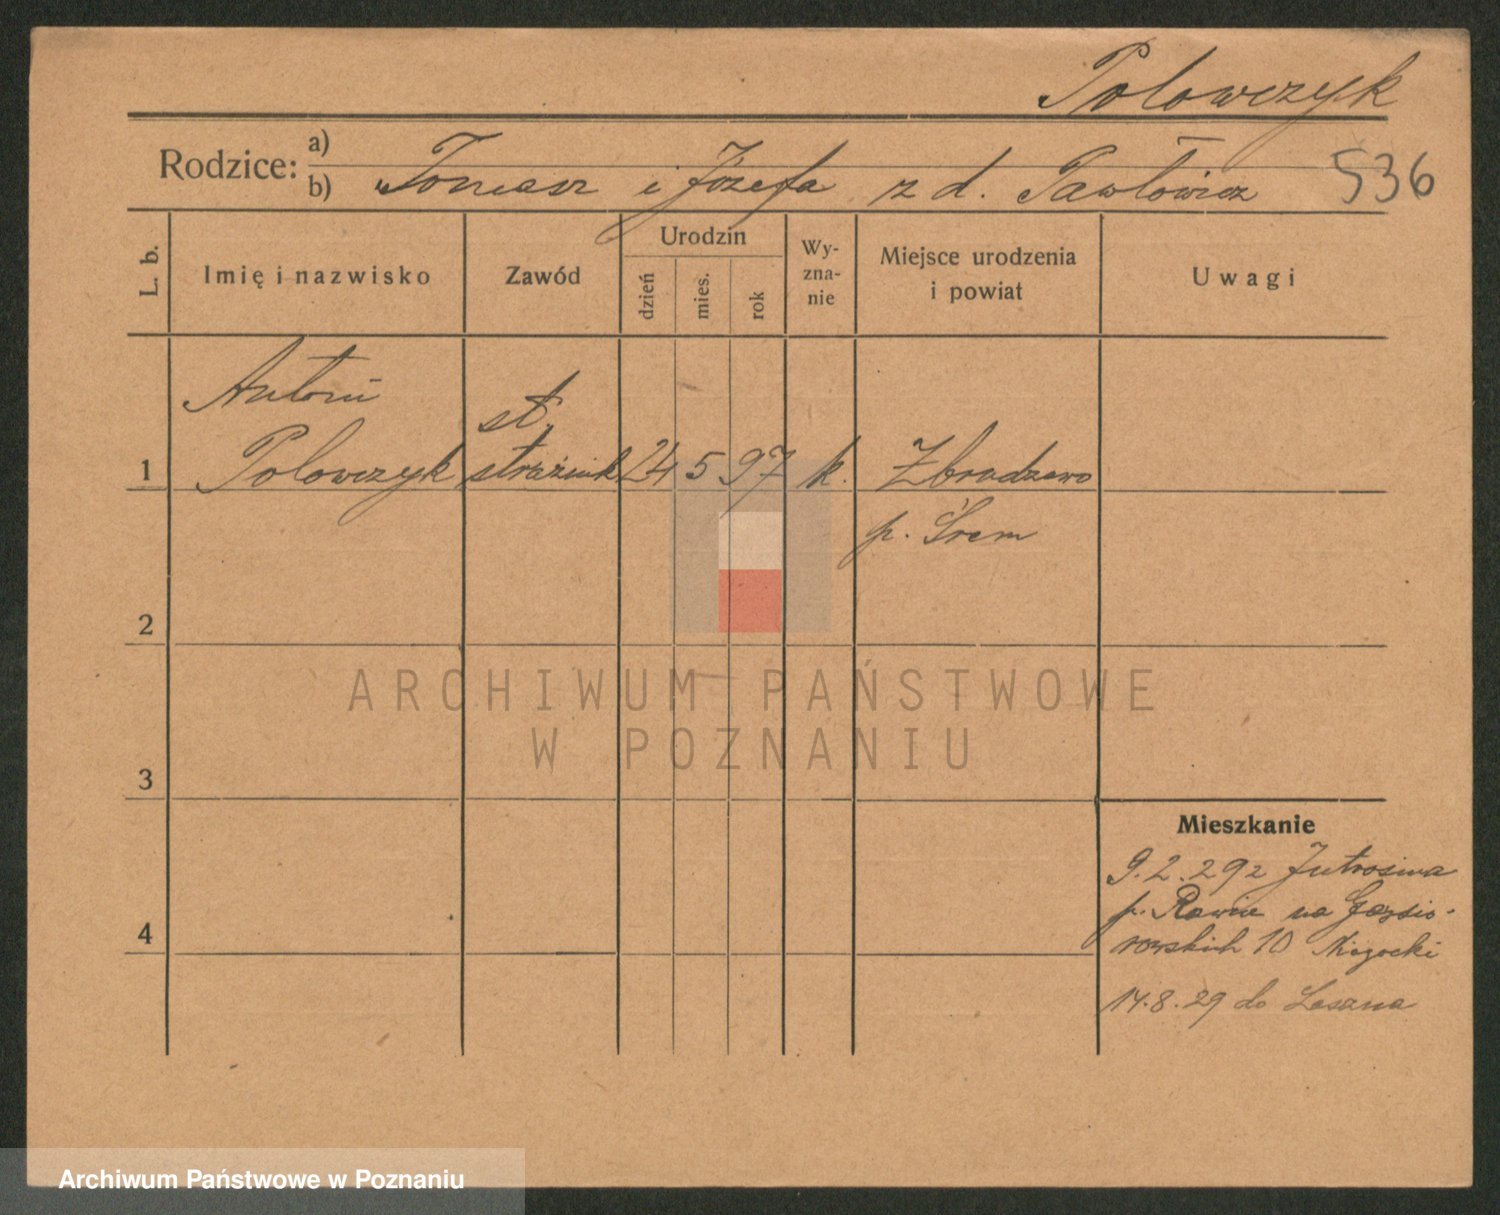 Polowczyk
Rodzice: a)
b) Tomasz i Józefa z d. Pawłowicz 536
L. b. Imię i nazwisko Zawód Urodzin dzień mies. rok Wyznanie Miejsce urodzenia i powiat Uwagi
Antoni st.
1 Polowczyk strażnik 24 5 97 k. Zbrudzewo
p. Śrem
2
ARCHIWUM PAŃSTWOWE
W POZNANIU
3
Mieszkanie
9.2.29 z Jutrosina
p. Rawicz na
4 10
14.8.29 do Leszna
Archiwum Państwowe w Poznaniu